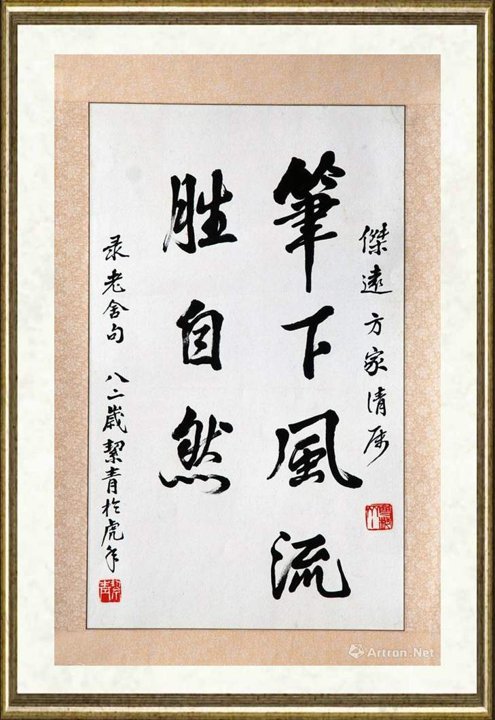 傑遠方家清属
筆下風流
胜自然
录老舍句 八十二歲絜青於虎年
Artron.Net